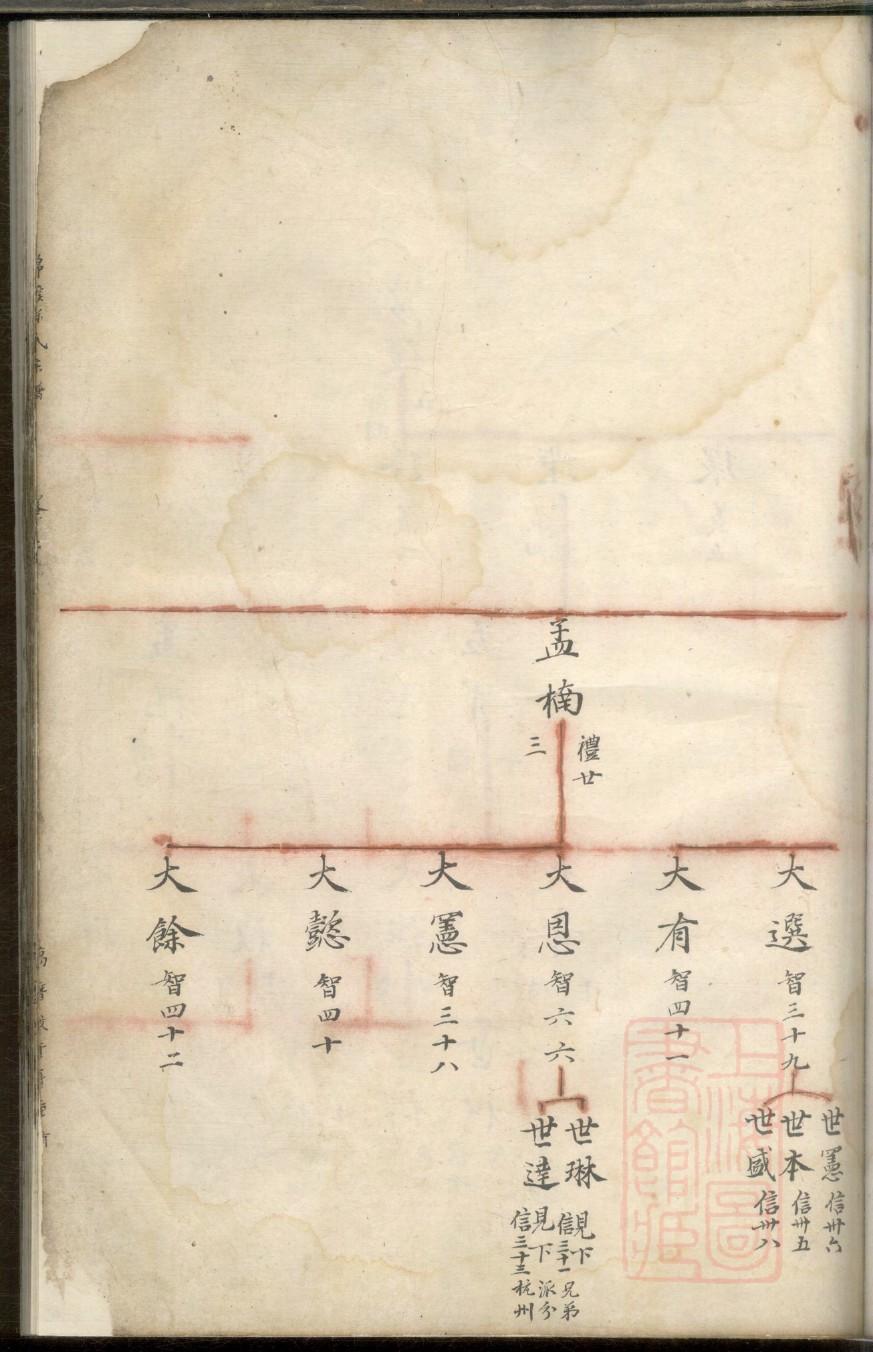 孟楠
禮廿
三
大選智三十九
大有智四十一
大恩智六六
大憲智三十八
大懿智四十
大餘智四十二
世憲信卅六
世本信卅五
世盛信卅八
世琳見下
信三十一兄弟
世達見下派分
信三十三杭州
上海圖書館藏